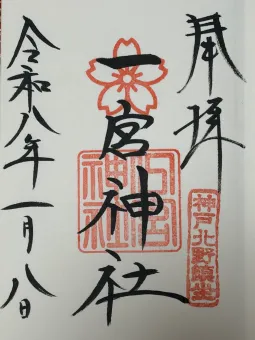 奉拝
神戸北野鎮座
一宮神社
一宮神社
令和八年一月八日